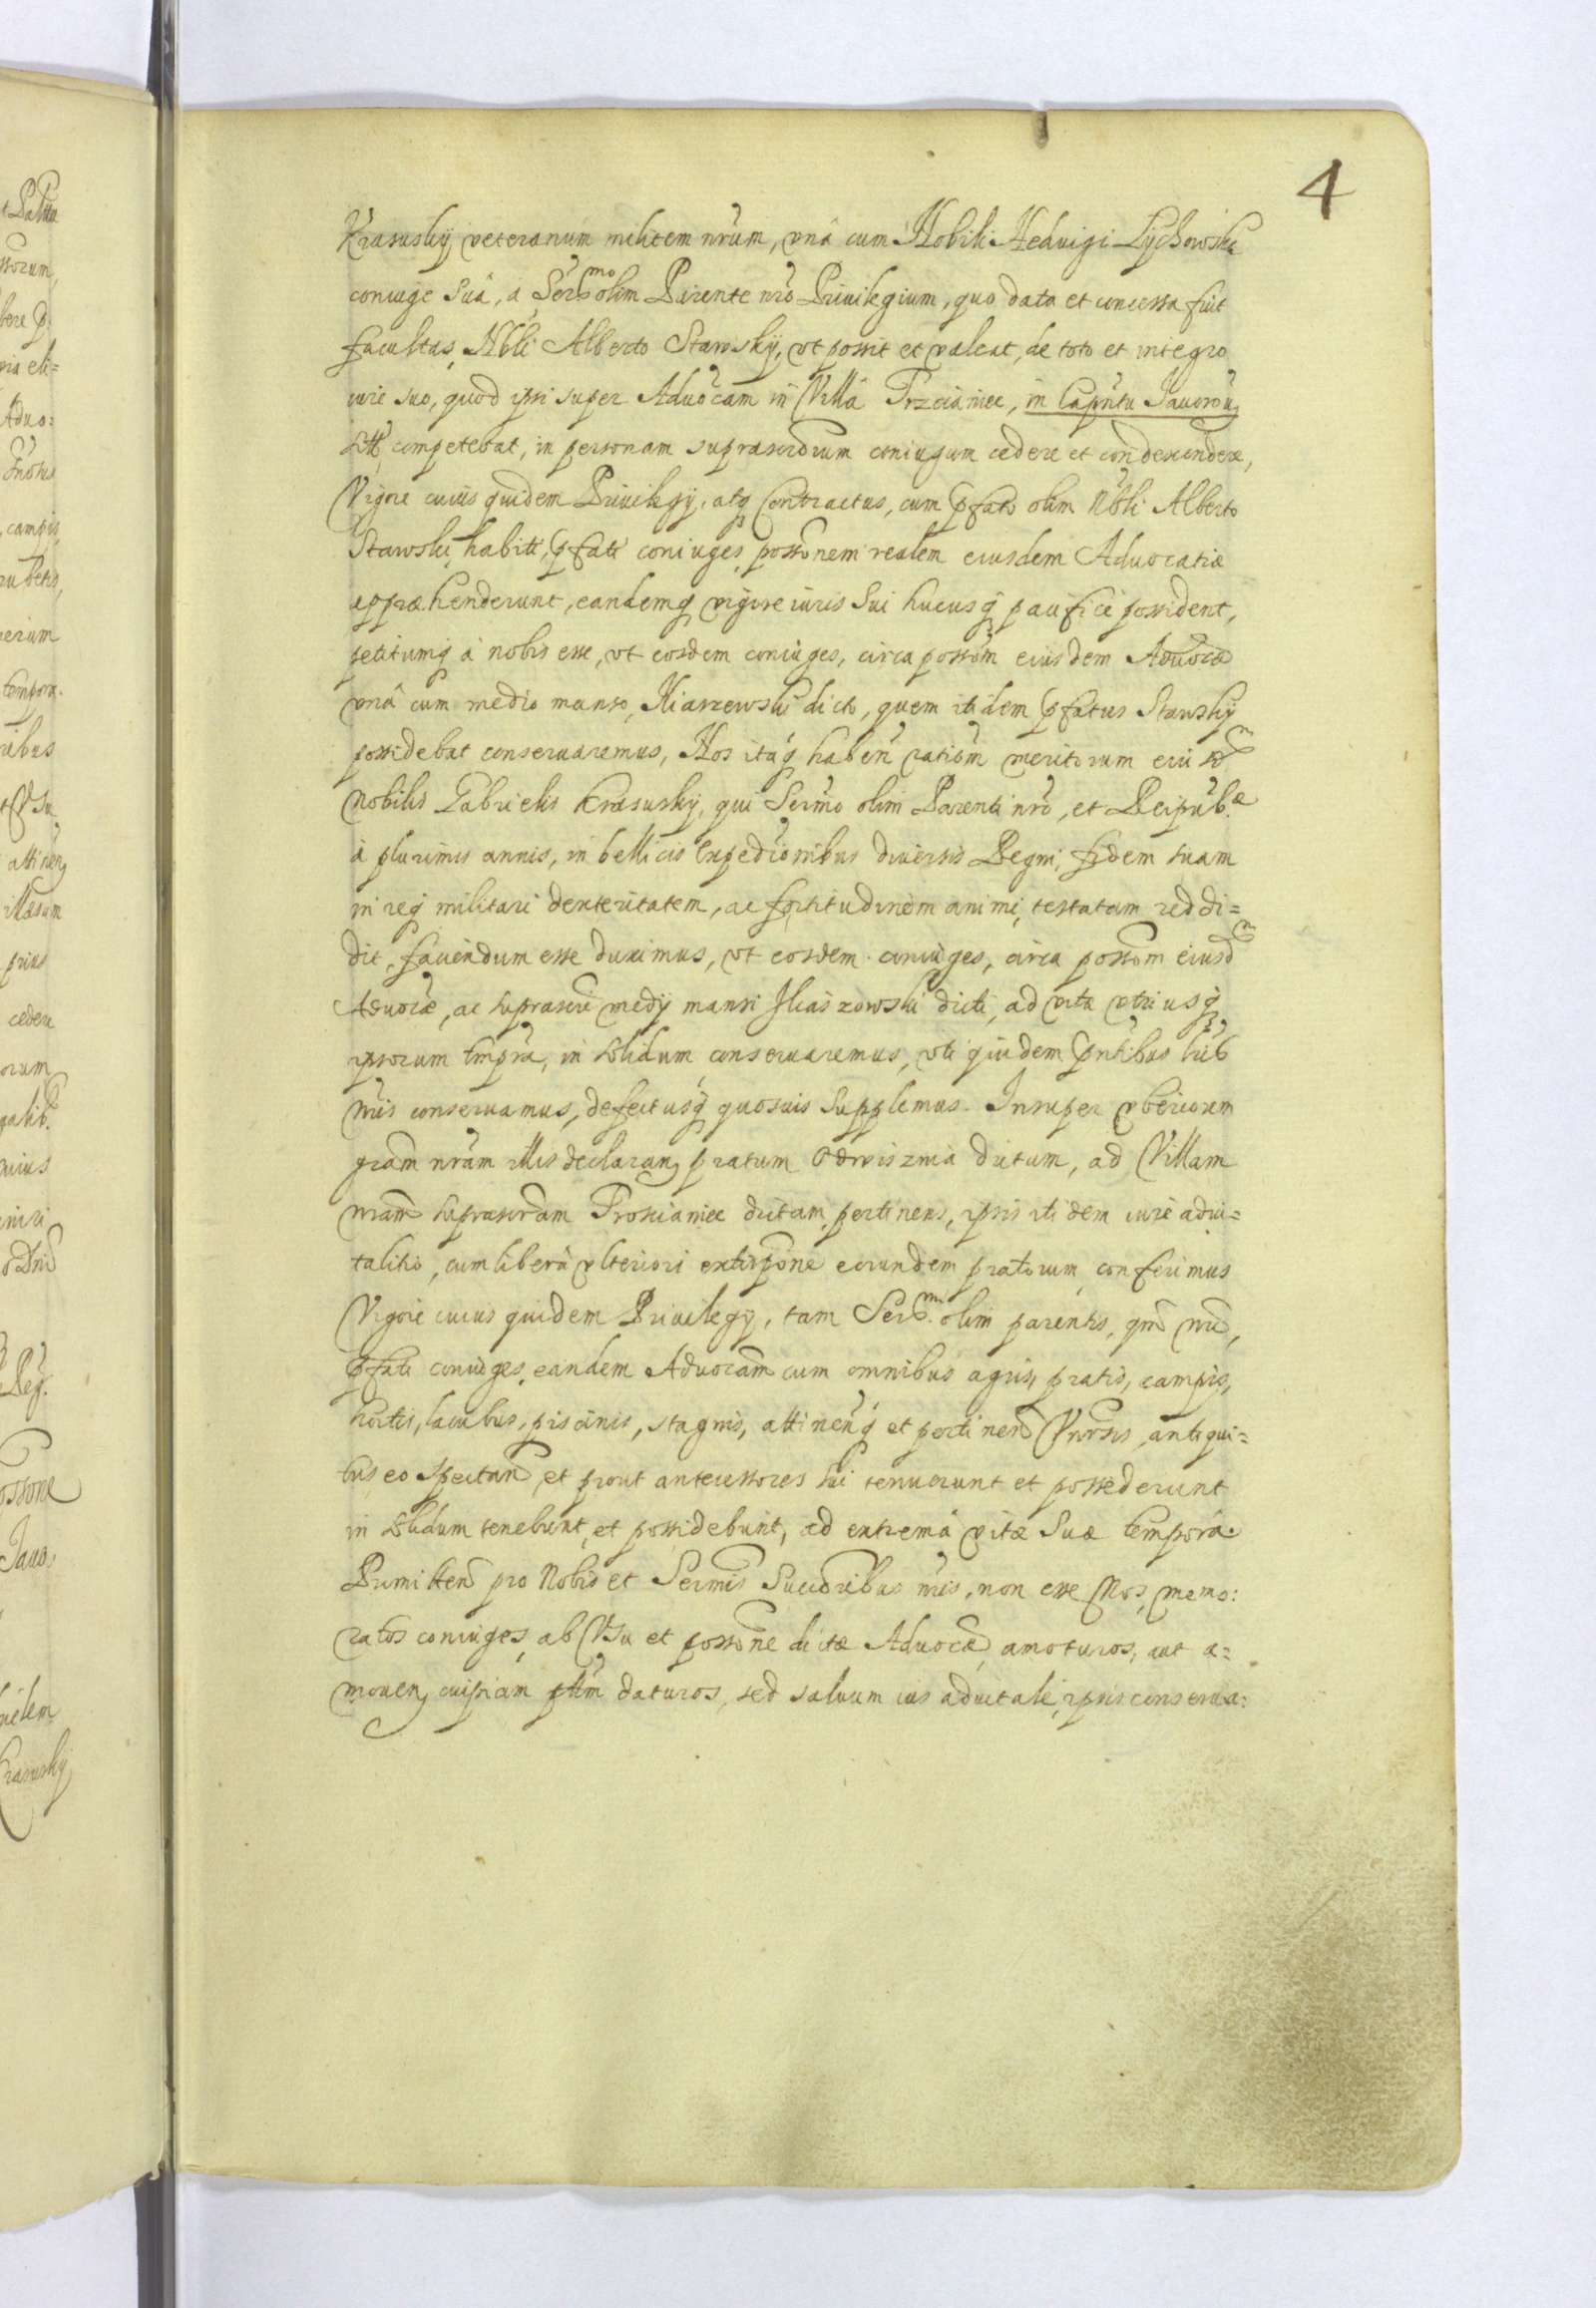 4
Krasuskÿ, veteranum militem nrum, vnâ cum Nobili Hedvigi Lychowska
coniuge Suâ, a Sermo olim Parente nro Priuilegium, quo data et concessa fuit
facultas, Nbli Alberto Stawskÿ, vt possit et valeat, de toto et integro
iure suo, quod ipsi super Aduocam in Villa Trzcianiec, in Capntu Jauorou
competebat, in personam suprascrdrum coniugum cedere et condescendere,
Vigore cuius quidem Priuilegÿ, atq Contractus, cum pfato olim Nbli Alberto
Stawski habiti, pfati coniuges, possonem realem eiusdem Aduocatiæ
appræhenderunt, eandemq vigore iuris Sui hucusq pacificè possident,
petitumq à nobis esse, vt eosdem coniuges, circa possom eiusdem Aduocæ
vnâ cum medio manso, dicto, quem itidem pfatus Stawskÿ
possidebat conseruaremus, Nos itaq haben rationm meritorum eiusdem
nobilis Gabrielis Krasuskÿ, qui Sermo olim Parenti nro, et Reipub.æ
à plurimis annis, in bellicis Expedionibus diuersis Regni, fidem suam
in req militari dexteritatem, ac fortitudinem animi, testatam reddi=
dit, fauendum esse duximus, vt eosdem coniuges, circa possom eiusd
Aduocæ, ac suprascri medÿ mansi dicti, ad vitæ vtriusq
ipsorum tmpra, in solidum conseruaremus, vti quidem pntibus lris
nris conseruamus, defectusq quosuis Supplemus. Insuper vberiorem
gram nram illis declaran, pratum Odwisznia dictum, ad Villam
nram suprascrdam Troscianiec dictam, pertinens, ipsis itidem iure adui=
talitio, cum libera vlteriori extirpone eorundem pratorum, conferimus
Vigore cuius quidem Priuilegÿ, tam Sermi olim parentis, qm nri,
pfati coniuges, eandem Aduocam cum omnibus agris, pratis, campis,
hortis, lacubus, piscinis, stagnis, attinenq et pertinen Vnrsis, antiqui=
tus eo Spectan, et prout antecessores Sui tenuerunt et possederunt
in solidum tenebunt, et possidebunt, ad extrema vitæ Suæ tempora.
Promitten pro Nobis et Sermis Succribus nris, non esse Nos, memo:
ratos coniuges, ab Vsu et possone dictæ Aduocæ, amoturos, aut a=
mouen, cuipiam daturos, sed saluum ius aduitale, ipsis conserua: